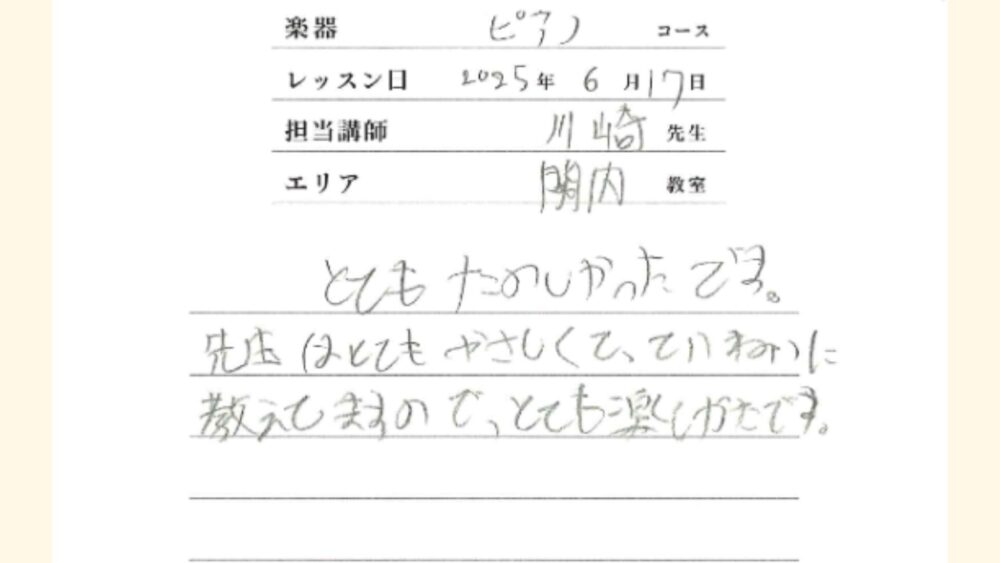 楽器 ピアノ コース
レッスン日 2025年 6月17日
担当講師 川崎 先生
エリア 関内 教室
とても たのしかったです。
先生はとてもやさしくて、ていねいに
教えてますので、とても楽しかたです。